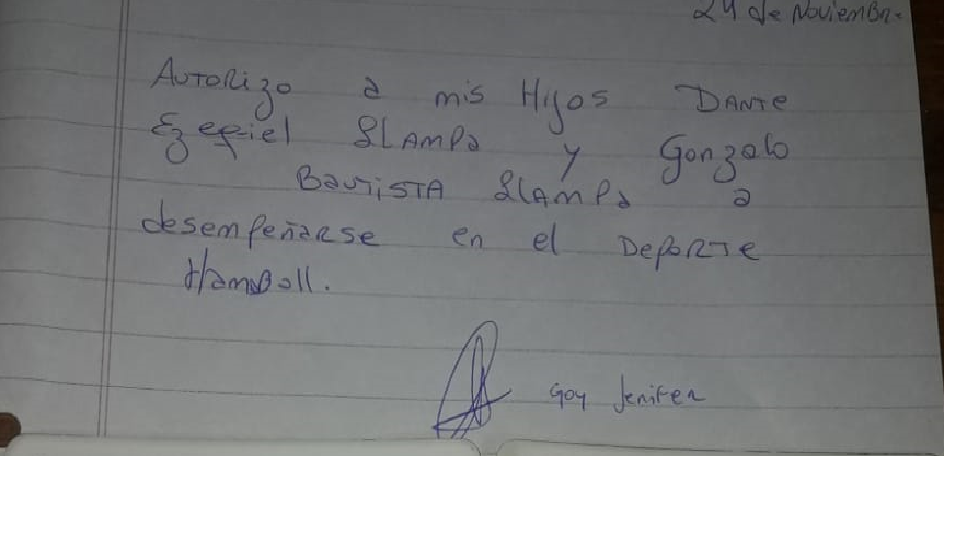 24 de Noviembre
Autorizo a mis Hijos Dante
Ezequiel Llampa y Gonzalo
Bautista Llampa a
desempeñarse en el Deporte
Hamboll.
Goy Jenifer